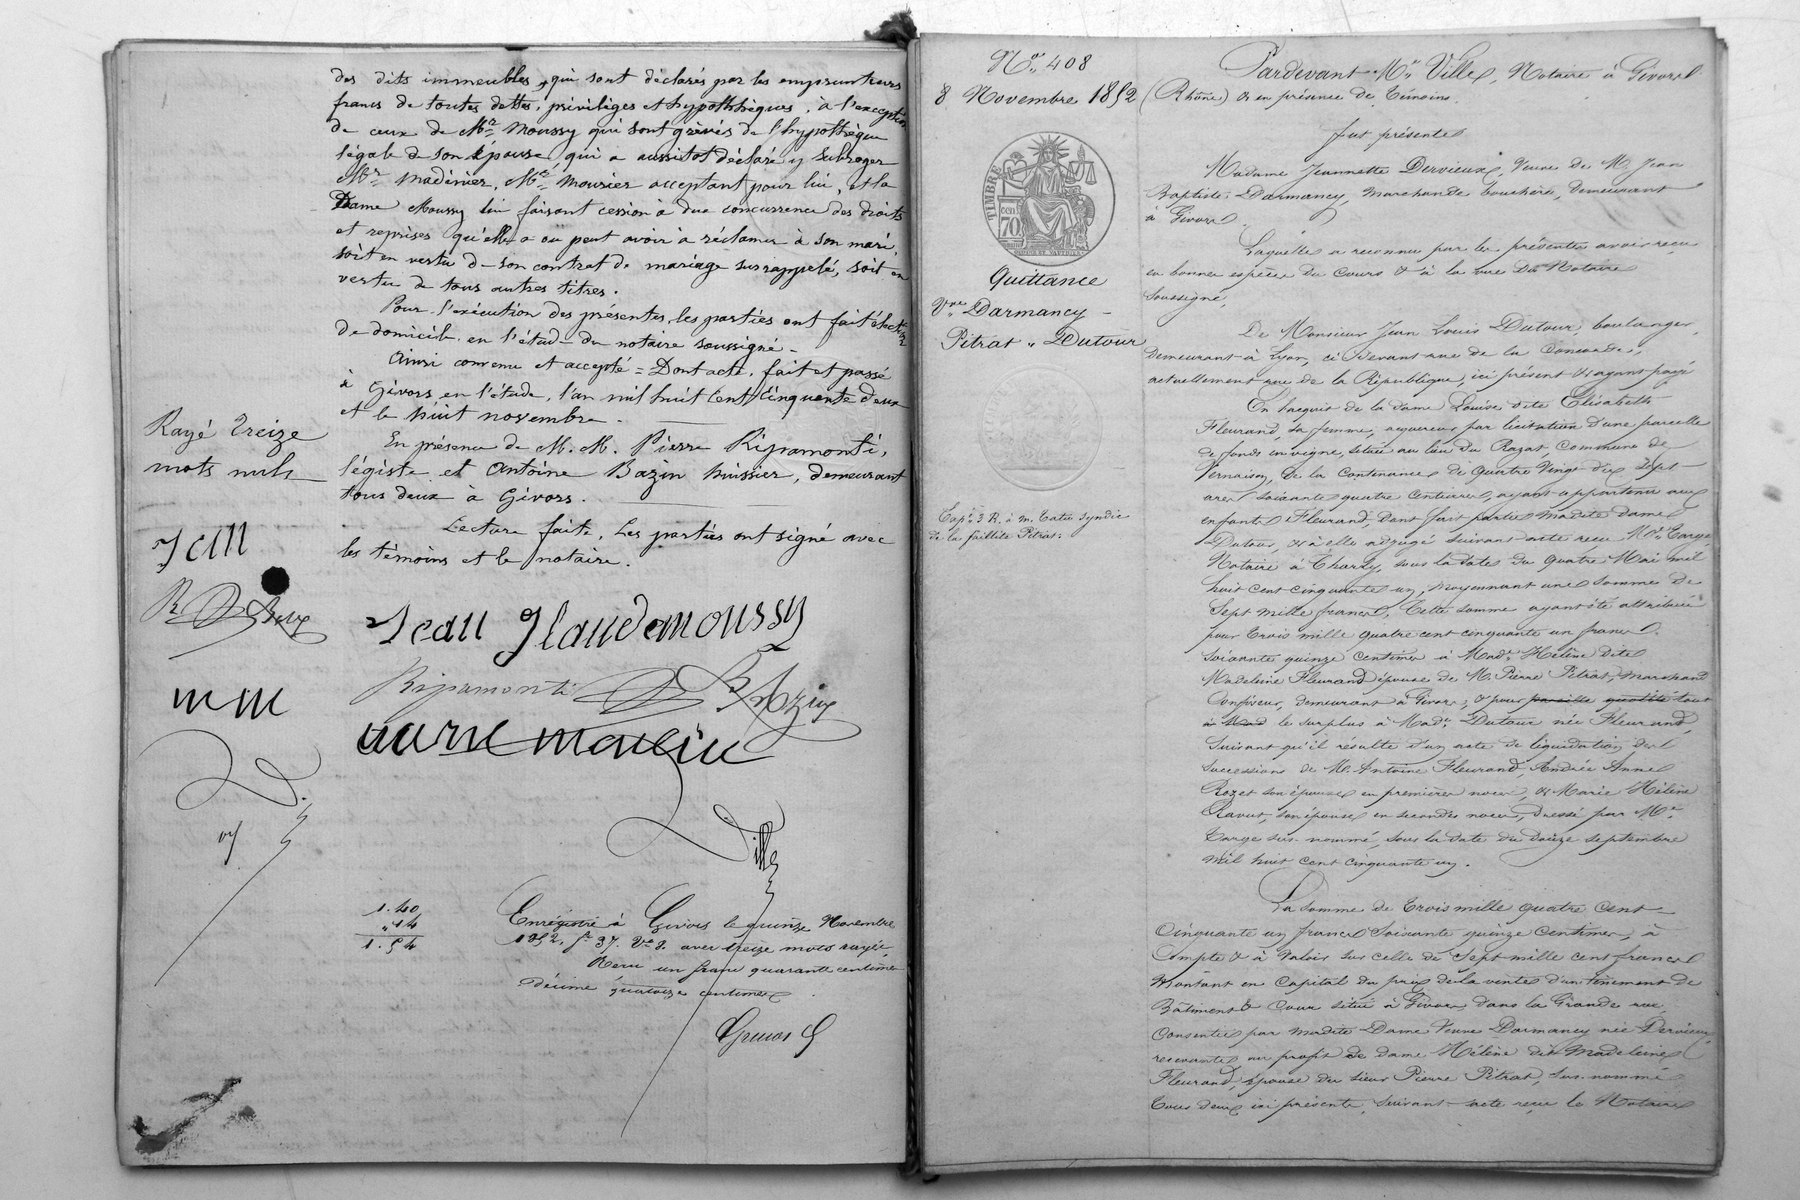 des dits immeubles, qui sont déclarés par les emprunteurs
francs de toutes dettes, priviléges et hypothèques, à l'exception
de ceux de Mr Moussy qui sont grévés de l'hypothèque
légale de son épouse qui a aussitot déclaré y subroger
Mr Madinier, Me Mourier acceptant pour lui, et la
Dame Moussy lui faisant cession à due concurrence des droits
et reprises qu'elle a ou peut avoir à réclamer à son mari,
soit en vertu de son contrat de mariage susrappelé, soit en
vertu de tous autres titres.
Pour l'exécution des présentes, les parties ont fait élection
de domicile en l'étude du notaire soussigné.
Ainsi convenu et accepté = Dont acte, fait et passé
à Givors en l'étude, l'an mil huit cent cinquante deux
et le huit novembre.
En présence de M.M. Pierre Ripamonti,
légiste et Antoine Bazin huissier, demeurant
tous deux à Givors.
Lecture faite, les parties ont signé avec
les témoins et le notaire.
Rayé treize
mots nuls
Jean
Jean Claude moussy
Ripamonti
Bazin
mm
Ville
1.40
" 14
1.54
Enrégistré à Givors le quinze Novembre
1852, fo 37. Vo 8. avec treize mots rayés,
Reçu un franc quarante centimes
décime quatorze centimes
No 408
8 Novembre 1852
TIMBRE
70
Quittance
Vve Darmancy -
Pitrat " Dutour
de la faillite Pitrat.
Pardevant Me Ville, Notaire à Givors
(Rhône) & en présence de témoins.
fut présente
Madame Jeannette Dervieux, Veuve de M. Jean
Baptiste Darmancy, marchande bouchère, demeurant
à Givors
Laquelle a reconnu par les présentes avoir reçu
en bonnes espèces du cours & à la vue du Notaire
soussigné,
De Monsieur Jean Louis Dutour, boulanger,
demeurant à Lyon, ci devant rue de la Concorde,
actuellement rue de la République, ici présent & ayant payé
En l'acquit de la dame Louise dite Elisabeth
Fleurand, sa femme, acquereur par licitation d'une parcelle
de fonds en vigne, située au lieu du Razat, Commune de
Vernaison, de la contenance de quatre vingt dix sept
ares soixante quatre centiares, ayant appartenu aux
enfants Fleurand, dont fait partie Madite dame
Dutour, & à elle adjugé suivant acte reçu Me Targe
Notaire à Charly, sous la date du quatre Mai mil
huit cent cinquante un, moyennant une somme de
Sept mille francs, Cette somme ayant été attribuée
pour trois mille quatre cent cinquante un francs
soixante quinze centimes à Made Hélène dite
Madeleine Fleurand épouse de M. Pierre Pitrat, marchand
Confiseur, demeurant à Givors, & pour pareille quotité tout
le surplus à Made Dutour née Fleurand,
Suivant qu'il résulte d'un acte de liquidation des
successions de M. Antoine Fleurand, Andrée Anne
Rozet son épouse en premières noces, & Marie Hélène
Ravut, son épouse en secondes noces, dressé par Me
Targe sus-nommé, sous la date du douze septembre
mil huit cent cinquante un.
La somme de trois mille quatre cent
Cinquante un francs soixante quinze centimes, à
Compte & à valoir sur celle de Sept mille cent francs
Montant en capital du prix de la vente d'un tènement de
Bâtiment & Cour situé à Givors, dans la Grande rue
Consentie par madite Dame Veuve Darmancy née Dervieux
recevante au profit de dame Hélène dite Madeleine
Fleurand, épouse du sieur Pierre Pitrat, sus-nommé
tous deux ici présents, suivant acte reçu le Notaire